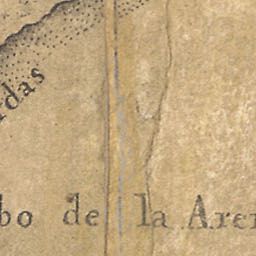 rdas
bo de la Aren